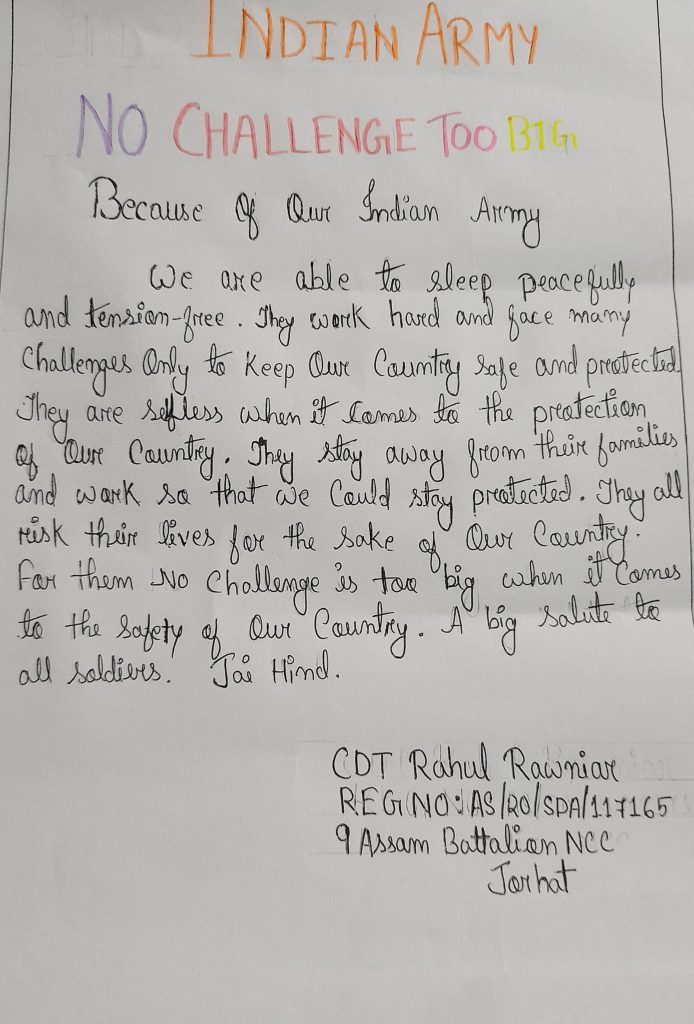 INDIAN ARMY
NO CHALLENGE TOO BIG
Because Of Our Indian Army
We are able to sleep peacefully
and tension-free. They work hard and face many
Challenges Only to Keep Our Country safe and protected.
They are selfless when it Comes to the protection
of Our Country. They stay away from their families
and work so that we Could stay protected. They all
risk their lives for the sake of Our Country.
For them No Challenge is too big when it Comes
to the safety of Our Country. A big salute to
all soldiers. Jai Hind.
CDT Rahul Rawniar
REG NO: AS/20/SDA/117165
9 Assam Battalion NCC
Jorhat